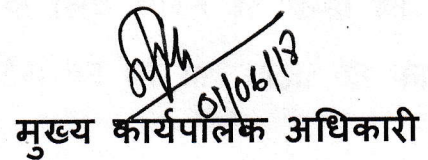 01/06/18
मुख्य कार्यपालक अधिकारी